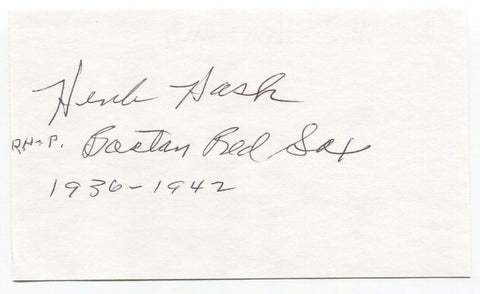 Herb Hash
R.H.P. Boston Red Sox
1936-1942